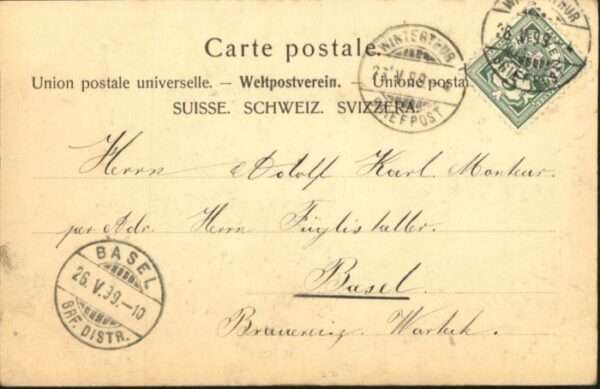 Carte postale.
Union postale universelle. — Weltpostverein. — Unione posta
SUISSE. SCHWEIZ. SVIZZERA.
WINTERTHUR
V.99
BRIEFPOST
WINTERTHUR
V.99
BRIEFPOST
Herrn Adolf Karl. Monteur.
per Adr. Herrn Füglistaller.
BASEL
26.V.99.–10
BRF. DISTR.
Basel.
Brauerei z. Warteck.